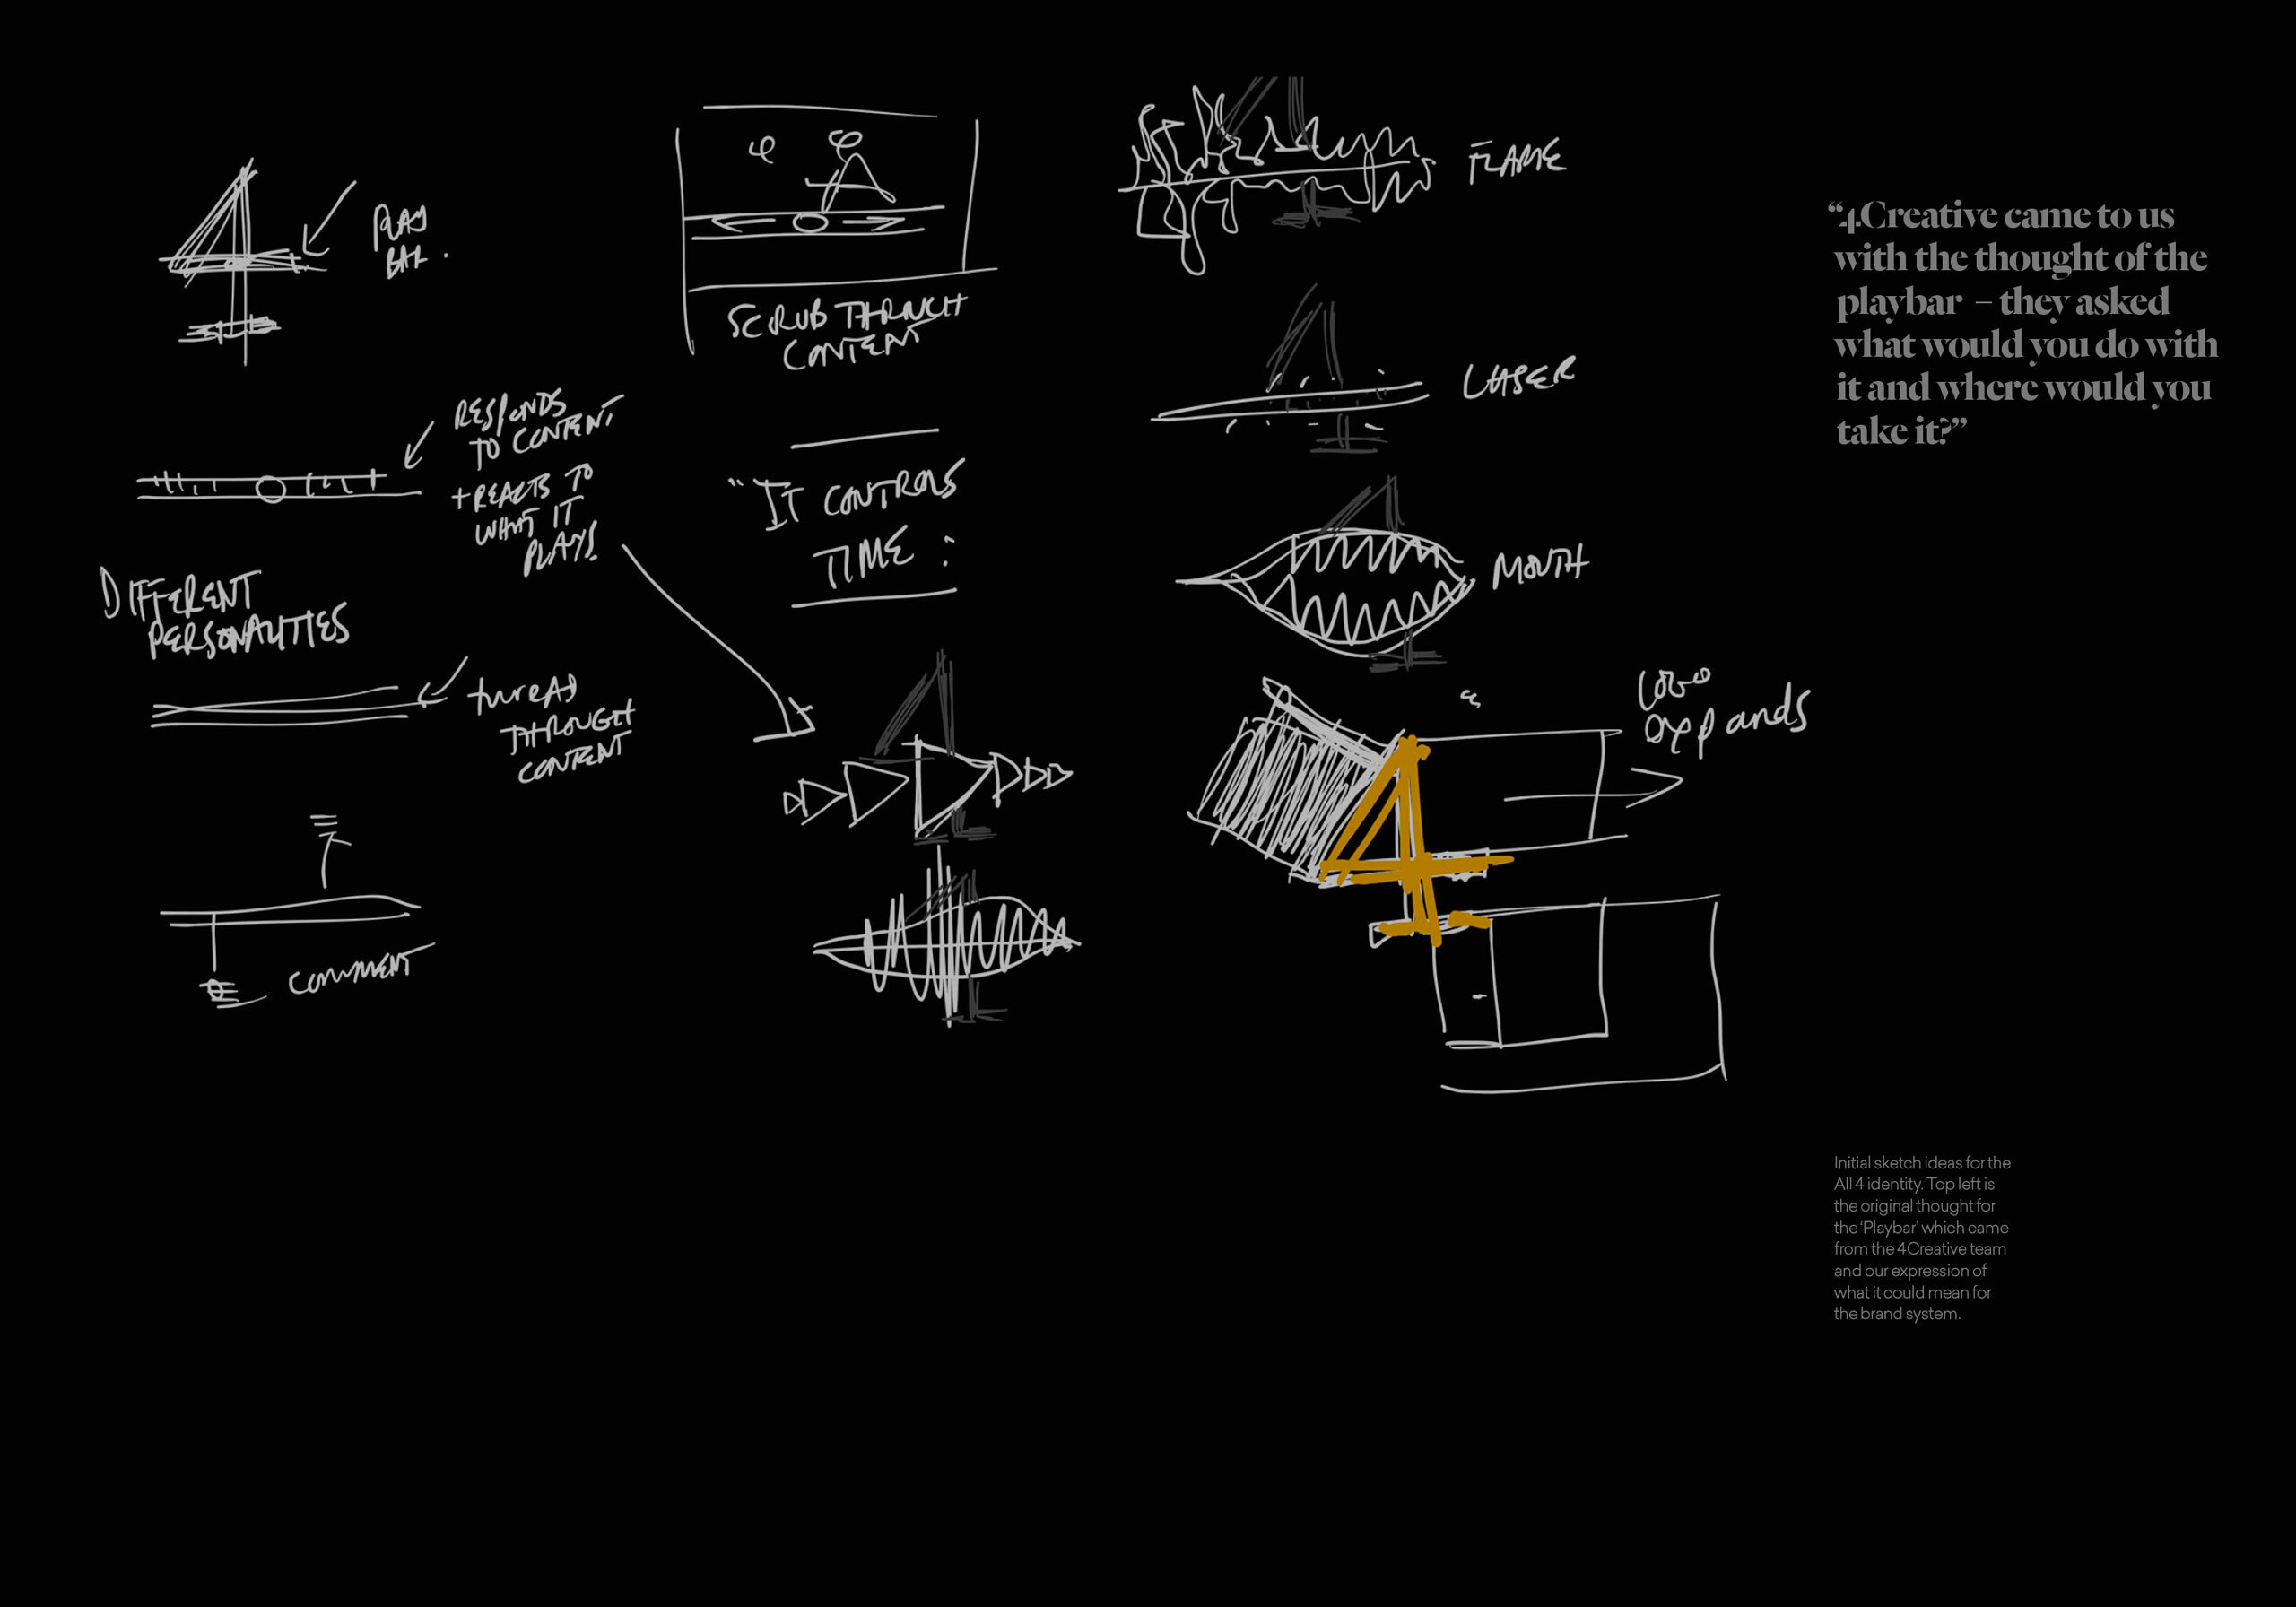 PLAY
BAR.
RESPONDS
TO CONTENT
+ REACTS TO
WHAT IT
PLAYS.
DIFFERENT
PERSONALITIES
thread
THROUGH
CONTENT
COMMENT
SCRUB THROUGH
CONTENT
"IT CONTROLS
TIME:
FLAME
LASER
MOUTH
LOGO
expands
“4Creative came to us
with the thought of the
playbar – they asked
what would you do with
it and where would you
take it?”
Initial sketch ideas for the
All 4 identity. Top left is
the original thought for
the ‘Playbar’ which came
from the 4Creative team
and our expression of
what it could mean for
the brand system.